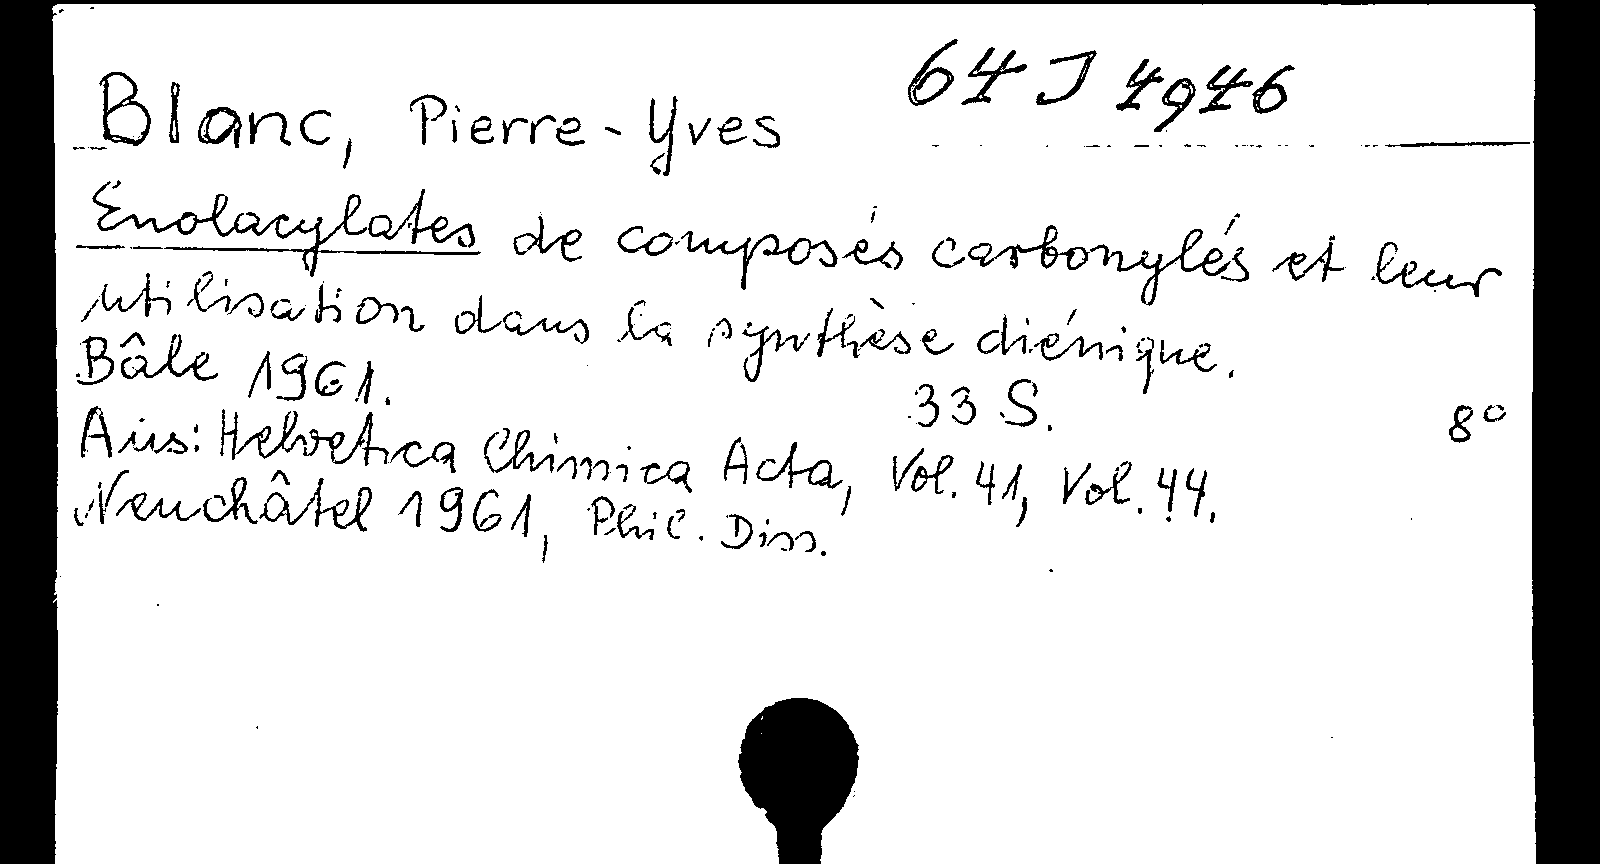 64 J 4946
Blanc, Pierre-Yves
Enolacylates de composés carbonylés et leur
utilisation dans la synthèse diénique.
Bâle 1961. 33 S. 8°
Aus: Helvetica Chimica Acta, Vol. 41, Vol. 44.
Neuchâtel 1961, Phil. Diss.